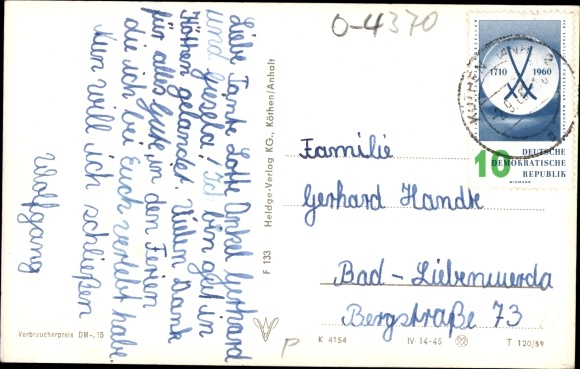 O-4370
Liebe Tante Lotte Onkel Gerhard
und Gisela! Ich bin gut in
Köthen gelandet. Vielen Dank
für alles Gute, in den Ferien
die ich bei Euch verlebt habe.
Nun will ich schließen
Wolfgang
Verbraucherpreis DM -,15
F 133 Heldge-Verlag KG., Köthen/Anhalt
1710 1960
10 DEUTSCHE
DEMOKRATISCHE
REPUBLIK
KÖTHEN
Familie
Gerhard Handke
Bad-Liebenwerda
Bergstraße 73
P
K 4154 IV-14-45 T 120/59